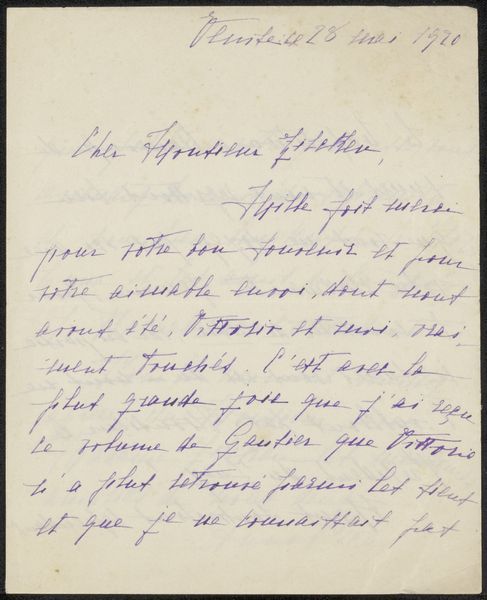 Venise le 28 mai 1920
Cher Monsieur Zilcken,
Mille fois merci
pour votre bon souvenir et pour
votre aimable envoi, dont nous
avons été, Vittorio et moi, vrai-
ment touchés. C'est avec la
plus grande joie que j'ai reçu
le volume de Gautier que Vittorio
n'a plus retrouvé parmi les siens
et que je ne connaissais pas